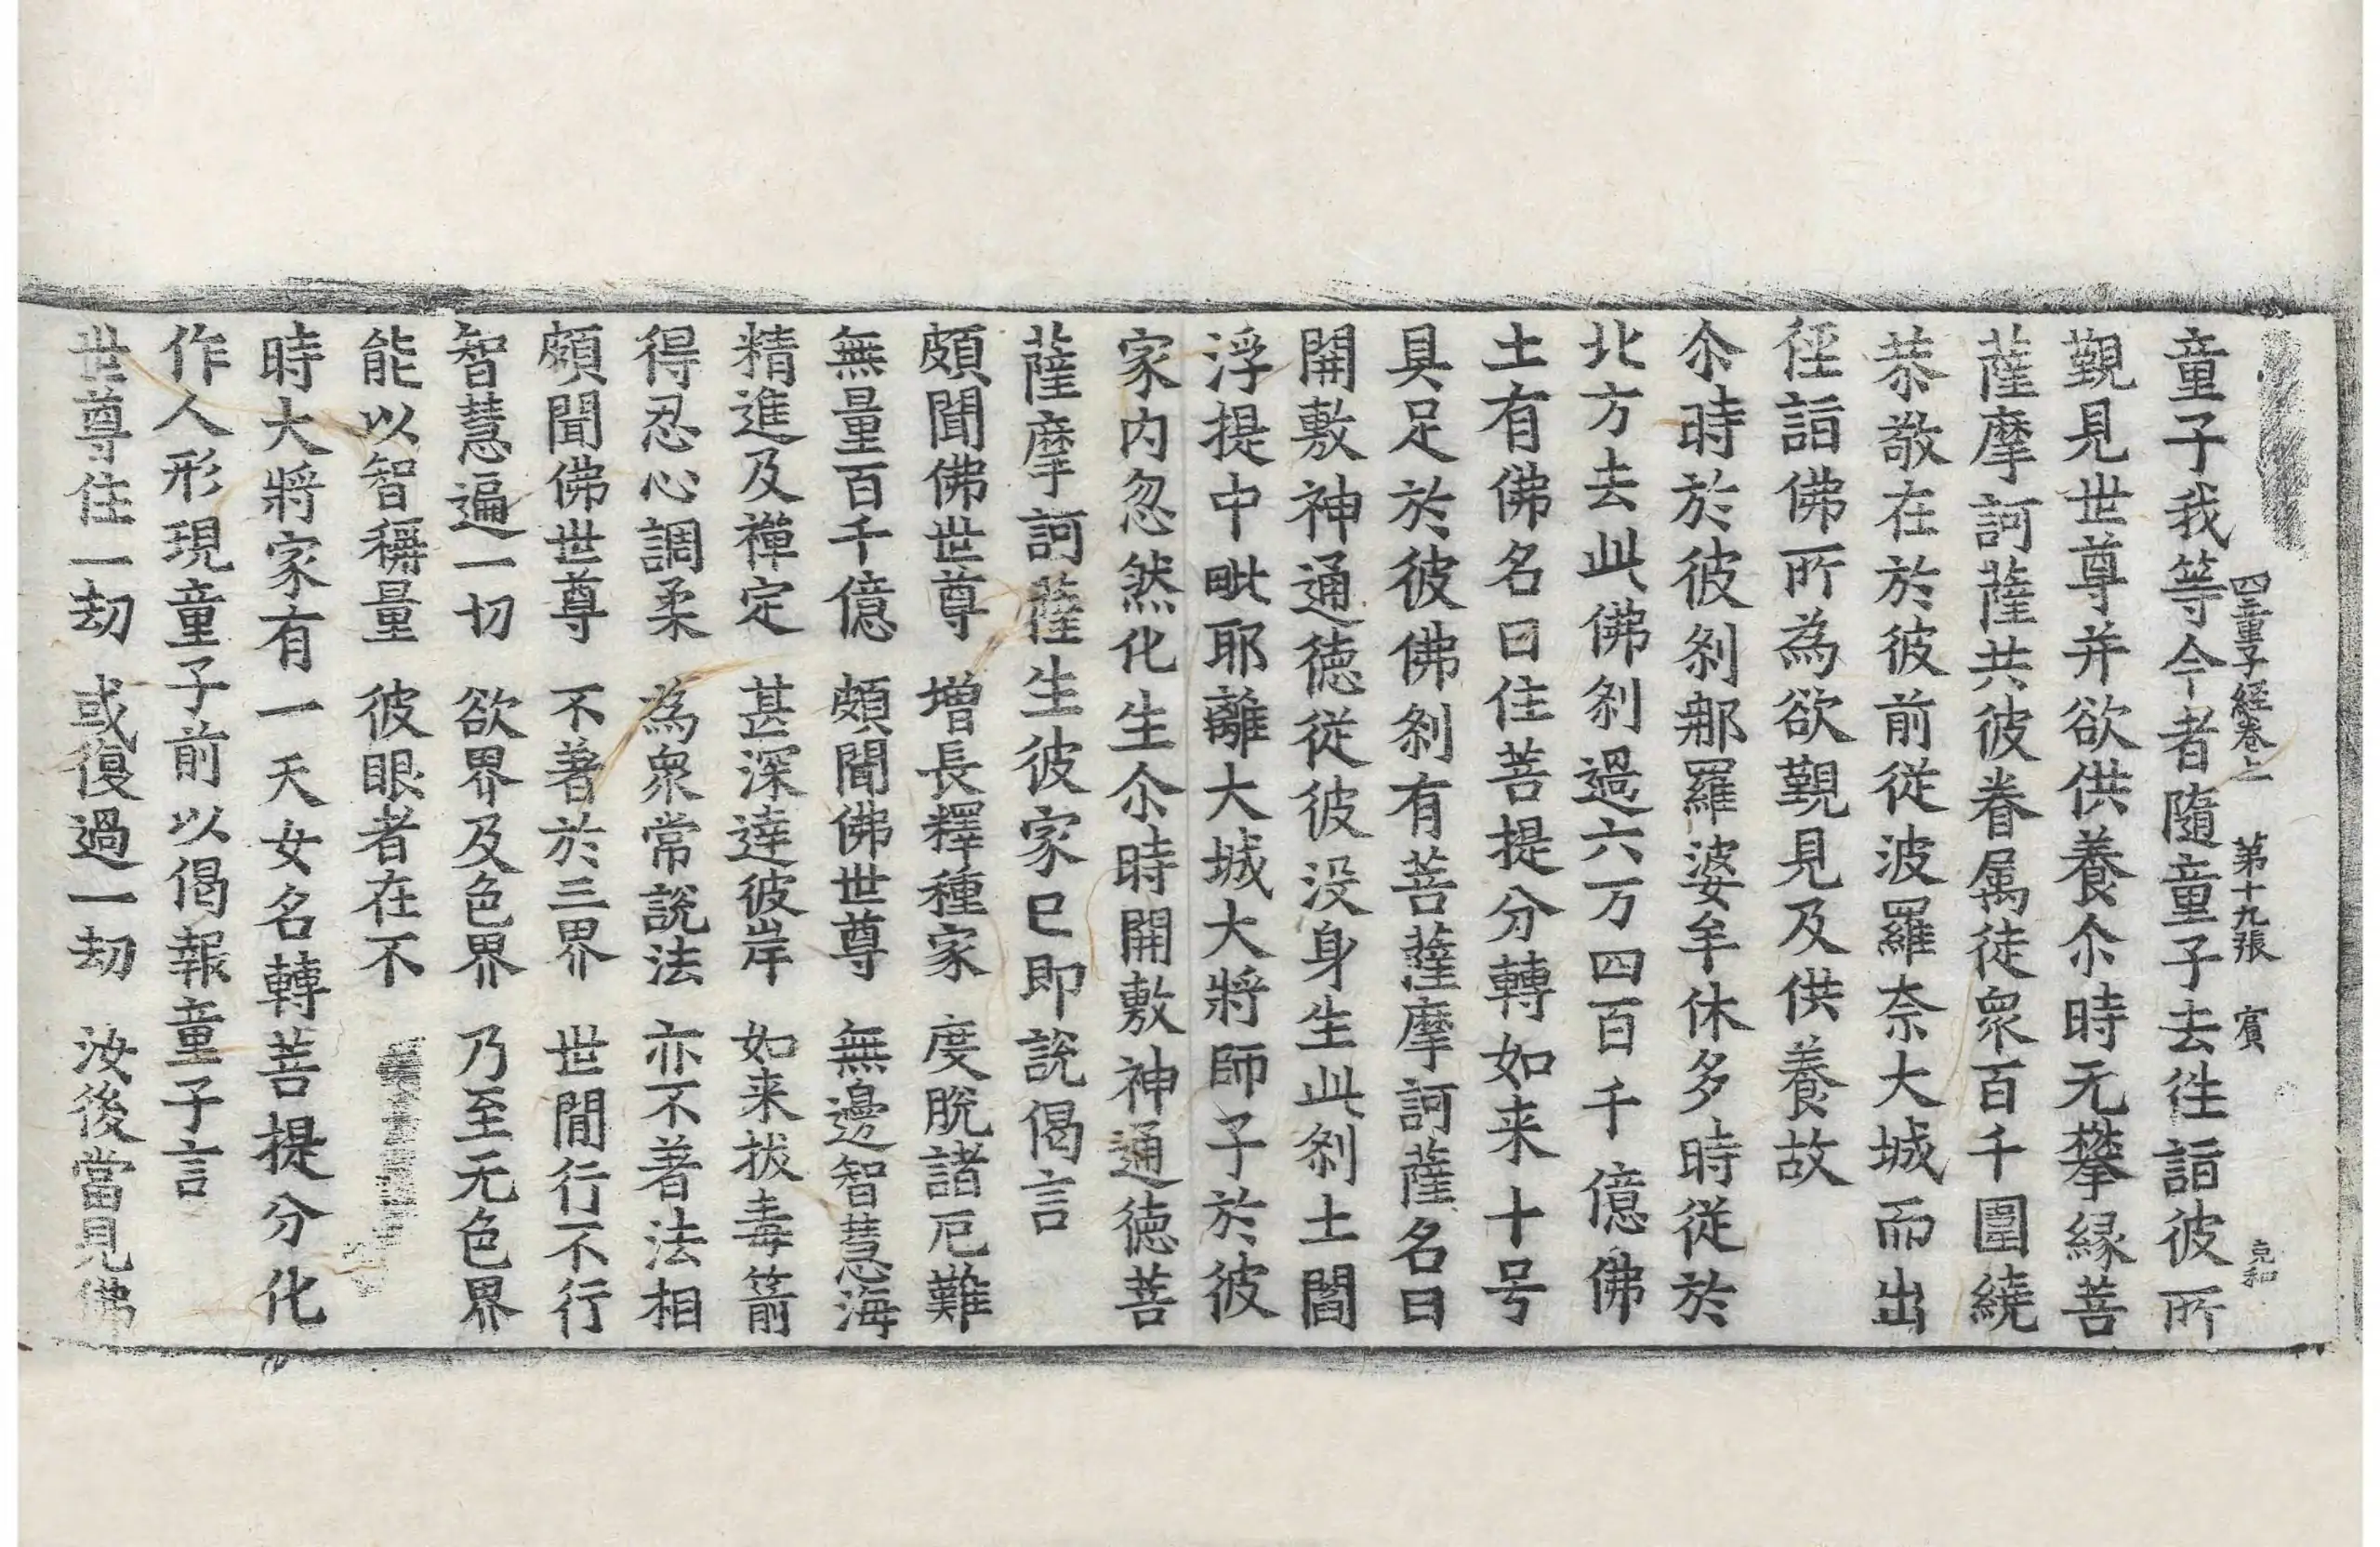 四童子經卷上 第十九張 賓
童子我等今者隨童子去徃詣彼所
覲見世尊并欲供養尒時无攀緣菩
薩摩訶薩共彼眷属徒衆百千圍繞
恭敬在於彼前従波羅奈大城而出
徑詣佛所為欲覲見及供養故
尒時於彼刹那羅婆牟休多時従於
北方去此佛刹過六万四百千億佛
土有佛名曰住菩提分轉如来十号
具足於彼佛刹有菩薩摩訶薩名曰
開敷神通德従彼没身生此刹土閻
浮提中毗耶離大城大將師子於彼
家内忽然化生尒時開敷神通德菩
薩摩訶薩生彼家已即說偈言
頗聞佛世尊 增長釋種家 度脫諸厄難
無量百千億 頗聞佛世尊 無邊智慧海
精進及禪定 甚深達彼岸 如来拔毒箭
得忍心調柔 為衆常說法 亦不著法相
頗聞佛世尊 不著於三界 世間行不行
智慧遍一切 欲界及色界 乃至无色界
能以智稱量 彼眼者在不
時大將家有一天女名轉菩提分化
作人形現童子前以偈報童子言
世尊住一劫 或復過一劫 汝後當見佛